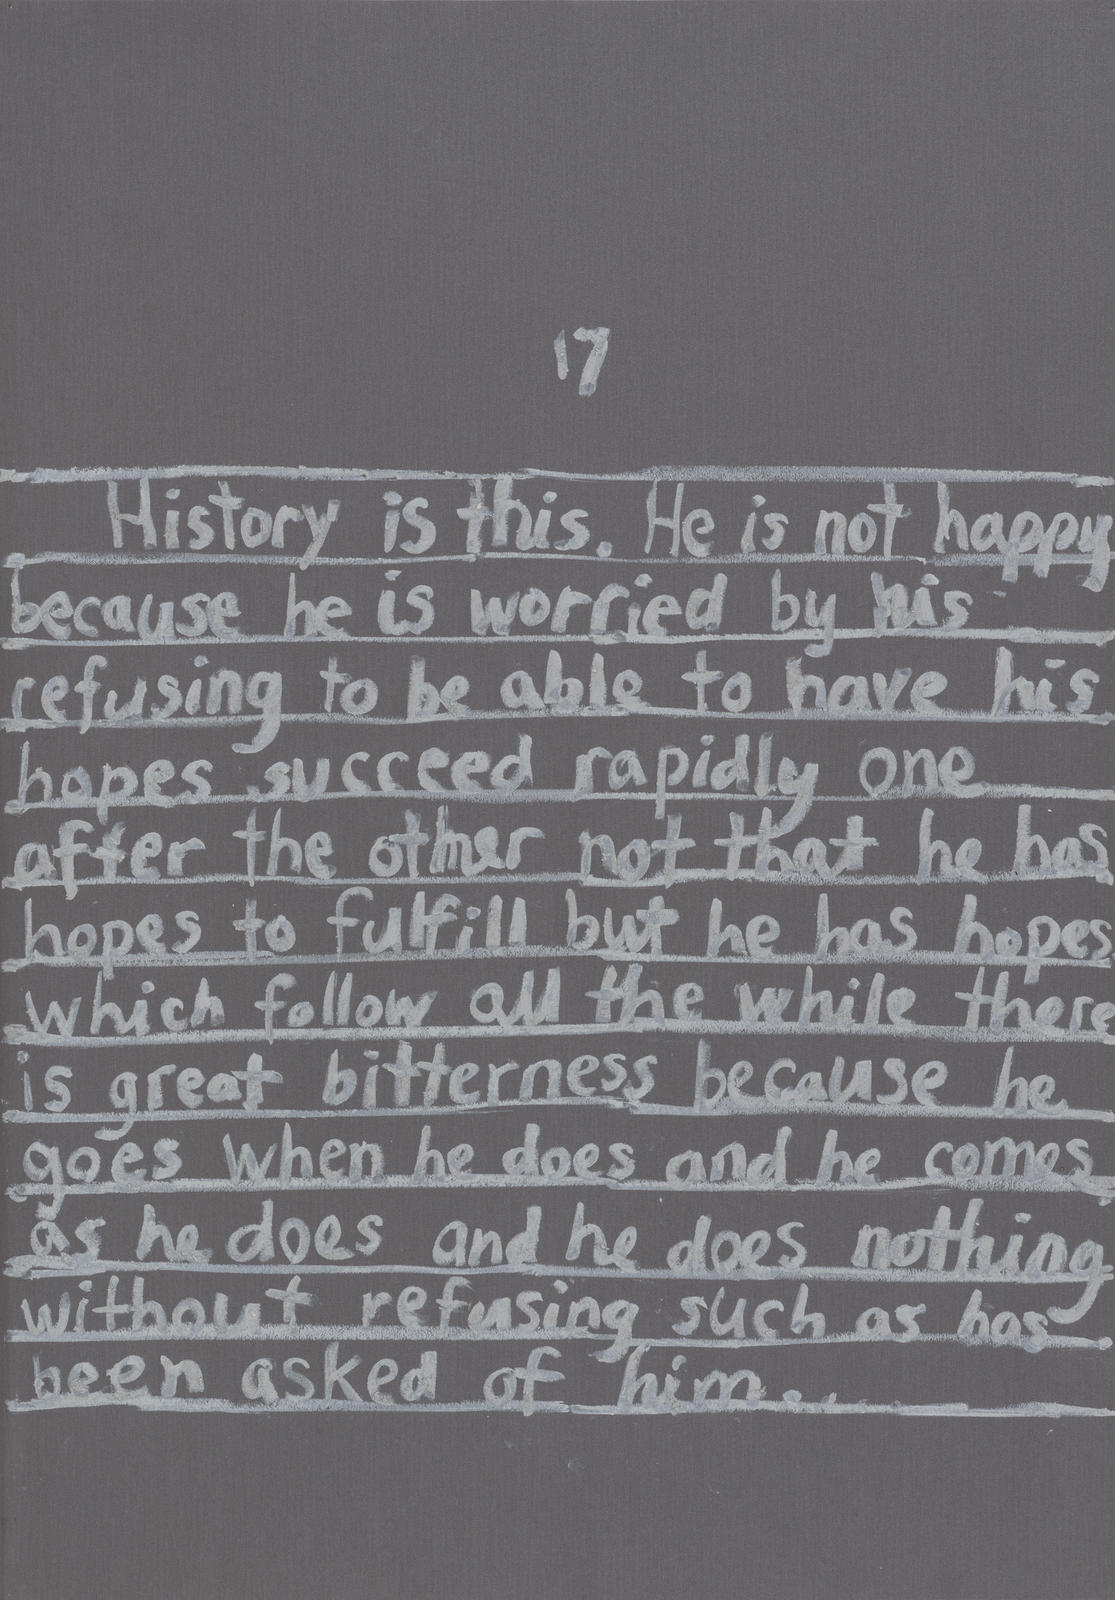 17
History is this. He is not happy
because he is worried by his
refusing to be able to have his
hopes succeed rapidly one
after the other not that he has
hopes to fulfill but he has hopes
which follow all the while there
is great bitterness because he
goes when he does and he comes
as he does and he does nothing
without refusing such as has
been asked of him...